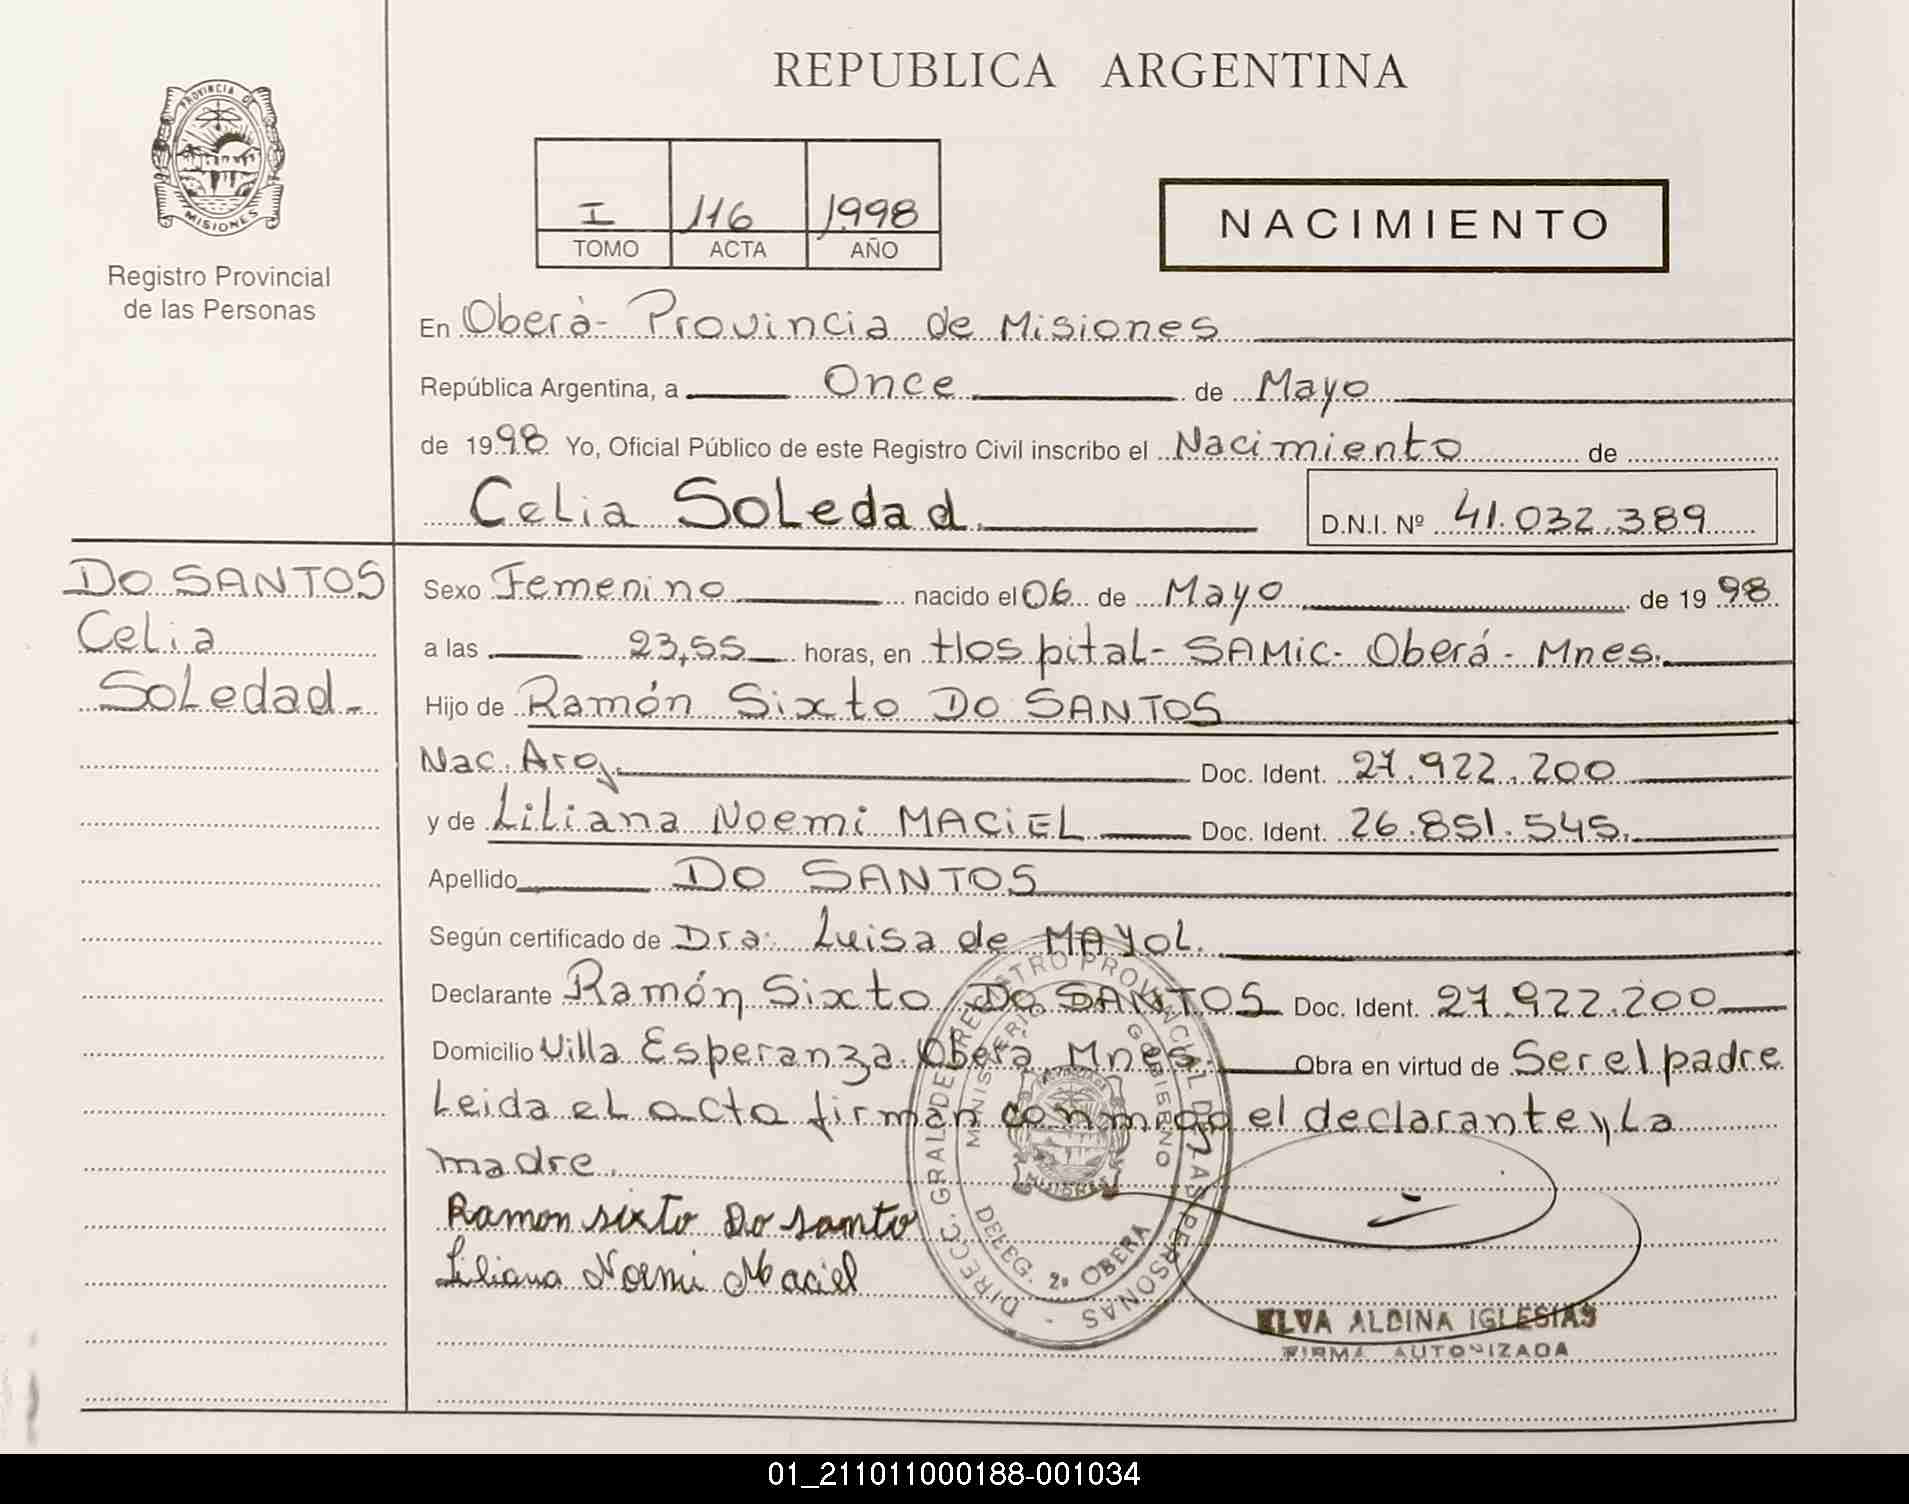 REPUBLICA ARGENTINA
PROVINCIA DE
MISIONES
Registro Provincial
de las Personas
I 116 1998
TOMO ACTA AÑO
NACIMIENTO
En Oberà- Provincia de Misiones
República Argentina, a Once de Mayo
de 1998 Yo, Oficial Público de este Registro Civil inscribo el Nacimiento de
Celia Soledad
D.N.I. Nº 41.032.389
DO SANTOS
Celia
Soledad-
Sexo Femenino nacido el 06 de Mayo de 1998
a las 23,55 horas, en Hospital- SAMIC- Oberá- Mnes.
Hijo de Ramón Sixto DO SANTOS
Nac. Arg. Doc. Ident. 27.922.200
y de Liliana Noemi MACIEL Doc. Ident. 26.851.545.
Apellido DO SANTOS
Según certificado de Dra. Luisa de MAYOL.
Declarante Ramón Sixto DO SANTOS Doc. Ident. 27.922.200
Domicilio Villa Esperanza. Oberá Mnes. Obra en virtud de Ser el padre
Leida el acta firman conmigo el declarante y La
madre.
Ramon sixto Do santo
Liliana Noemi Maciel
DIRECC. GRAL DE REGISTRO PROVINCIAL DE LAS PERSONAS -
MINISTERIO GOBIERNO
MISIONES
DELEG. 2º OBERA
ELVA ALBINA IGLESIAS
FIRMA AUTORIZADA
01_211011000188-001034